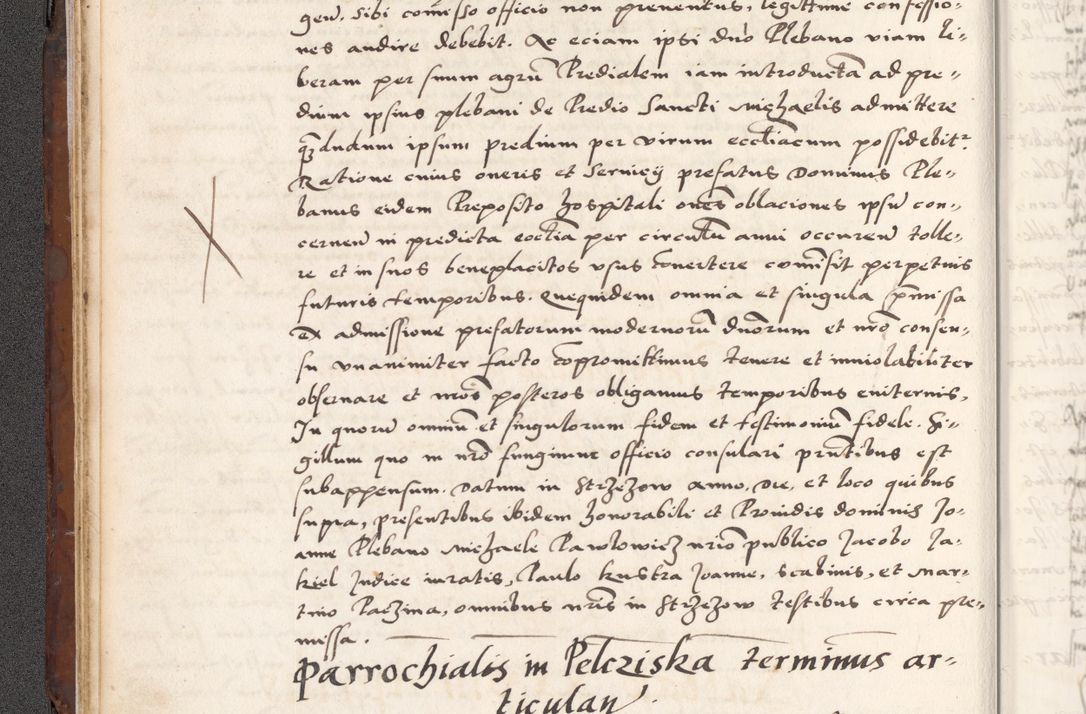 gen̄. Sibi com̄isso officio non preuentus, legittime confessio-
nes audire debebit. Ac eciam ipsi dn̄o Plebano viam li-
beram per suum agrū Predialem iam introductā ad pre-
dium ipsius plebani de Predio Sancti Michaelis admittere
quādudum ipsum predium per virum eccl̄iacum possidebitr
Ratione cuius oneris et Seruicij prefatus Dominus Ple-
banus eidem Preposito hospitali om̄es oblaciones ipsū con-
cernen̄ in predicta eccl̄ia per circulū anni occuren̄ tolle-
re et in suos beneplacitos vsus conuertere com̄isit perpetuis
futuris temporibus. Quequidem omnia et singula p̄missa
ex admissione prefatorum modernorū dn̄orum et nr̄o consen-
su vnanimiter facto cōpromittimus tenere et inuiolabiliter
obseruare et nr̄os posteros obligamus temporibus euiternis.
In quorū omniū et singulorum fidem et testimoniū fidele. Si-
gillum quo in nr̄o fungimur officio consulari pn̄tibus est
subappensum. Datum in Strzezow anno, Die, et loco quibus
supra, presentibus ibidem honorabili et Prouidis dominis Jo-
anne Plebano Michaele Pawlowicz nr̄io publico Jacobo Ja-
kiel Judice iuratis, Paulo kustra Joanne, scabinis, et Mar-
tino Paczina, omnibus nr̄is in Strzezow testibus circa pre-
missa.
Parrochialis in Pelcziska terminus ar-
ticulan̄.